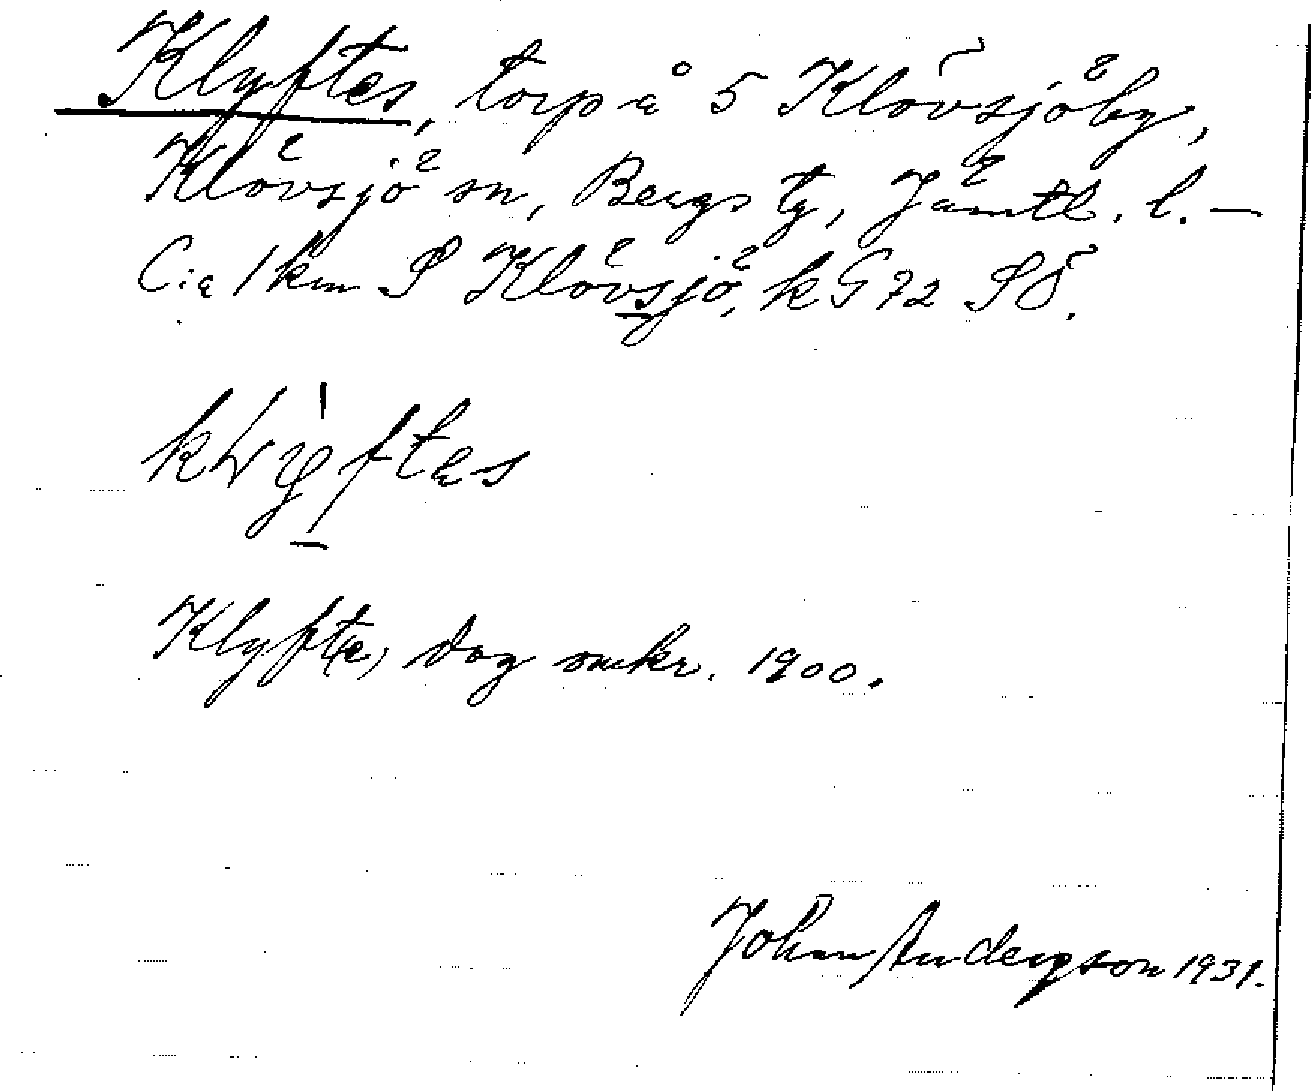 Klyftes, torp å 5 Klövsjöby,
Klövsjö sn, Bergs tg, Jämtl. l. —
C:a 1 km S Klövsjö, k G 72 SÖ.
Klyft(e), dog omkr. 1900.
Johan Anderson 1931.